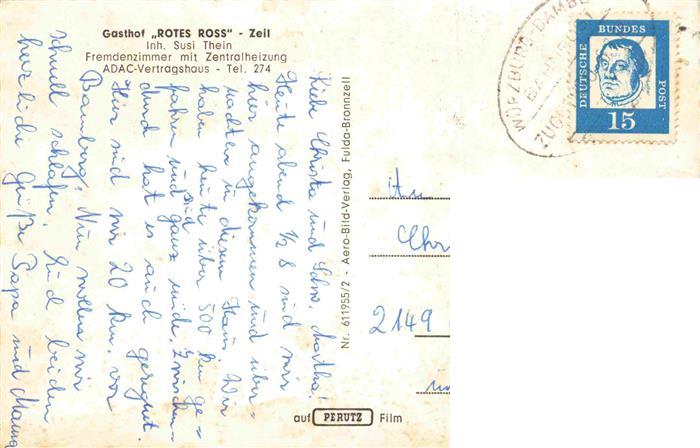 Gasthof „ROTES ROSS" - Zeil
Inh. Susi Thein
Fremdenzimmer mit Zentralheizung
ADAC-Vertragshaus - Tel. 274
Liebe Christa und Schw. Martha!
Heute abend 1/2 8 sind wir
hier angekommen und über-
nachten in diesem Haus. Wir
haben heute über 500 km ge-
fahren und sind ganz müde. Zwischen-
durch hat es auch geregnet.
Hier sind wir 20 km. vor
Bamberg. Nun wollen wir
schnell schlafen. Euch beiden
herzliche Grüße Papa und Mama
Nr. 611955/2 - Aero-Bild-Verlag, Fulda-Bronnzell
auf PERUTZ Film
WÜRZBURG-BAMBE
BAHNPOST
ZUG
DEUTSCHE BUNDES POST
15
An
Chr
2149